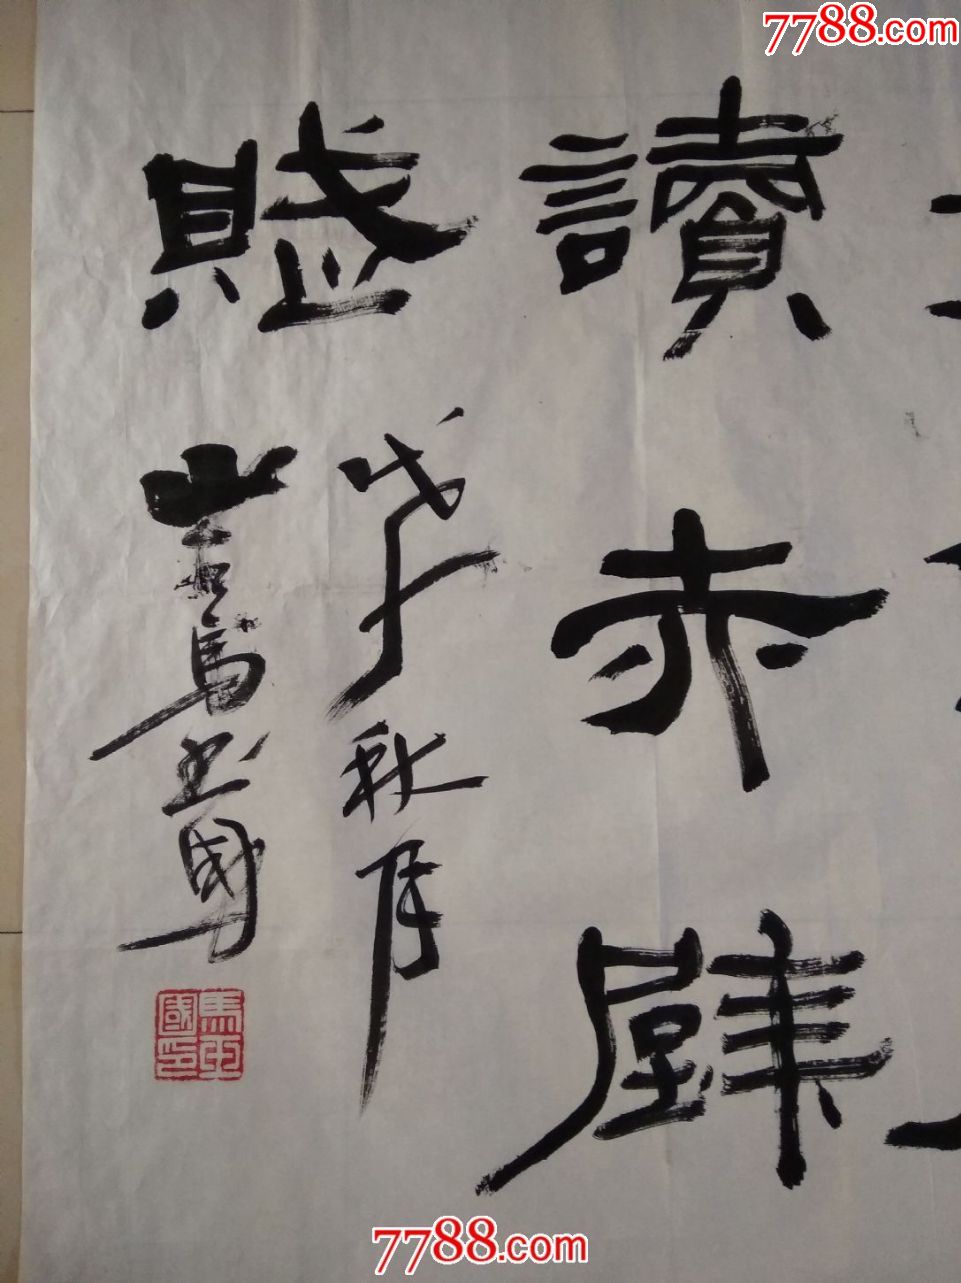 7788.com
讀赤壁
賦
戊子秋月
馬玉國
馬玉國印
7788.com